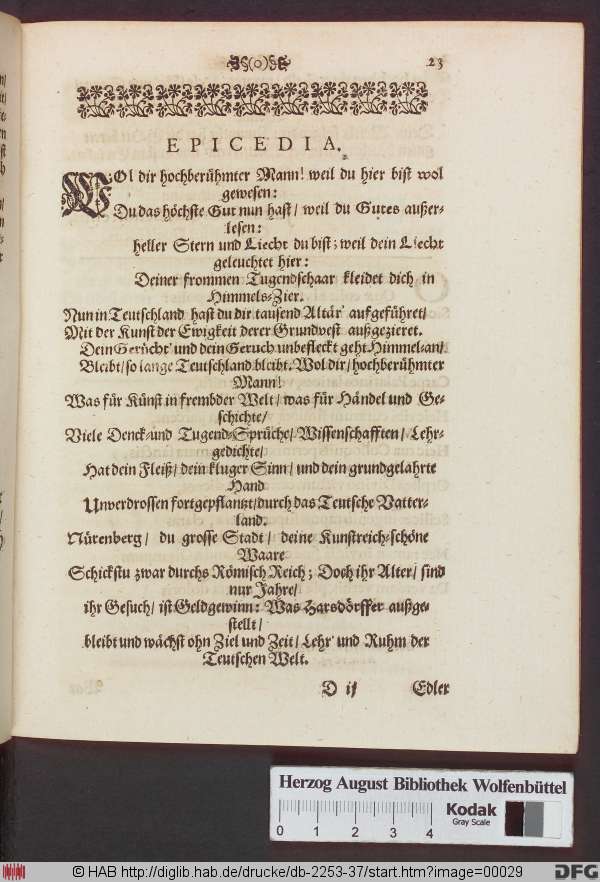 23
EPICEDIA.
WOl dir hochberühmter Mann! weil du hier bist wol
gewesen:
Du das höchste Gut nun hast/ weil du Gutes außer-
lesen:
heller Stern und Liecht du bist; weil dein Liecht
geleuchtet hier:
Deiner frommen Tugendschaar kleidet dich in
Himmels-Zier.
Nun in Teutschland hast du dir tausend Altär' aufgeführet/
Mit der Kunst der Ewigkeit derer Grundvest außgezieret.
Dein Gerücht' und dein Geruch unbefleckt geht Himmel-an/
Bleibt/ so lange Teutschland bleibt. Wol dir/ hochberühmter
Mann!
Was für Künst in frembder Welt/ was für Händel und Ge-
schichte/
Viele Denck-und Tugend-Sprüche/ Wissenschafften/ Lehr-
gedichte/
Hat dein Fleiß/ dein kluger Sinn/ und dein grundgelahrte
Hand
Unverdrossen fortgepflantzt/durch das Teutsche Vatter-
land.
Nürenberg/ du grosse Stadt/ deine Kunstreich-schöne
Waare
Schickstu zwar durchs Römisch Reich; Doch ihr Alter/ sind
nur Jahre/
ihr Gesuch/ ist Geldgewinn: Was Harsdörffer außge-
stellt/
bleibt und wächst ohn Ziel und Zeit/ Lehr' und Ruhm der
Teutschen Welt.
D ij Edler
Herzog August Bibliothek Wolfenbüttel
Kodak
Gray Scale
0 1 2 3 4
© HAB http://diglib.hab.de/drucke/db-2253-37/start.htm?image=00029
DFG